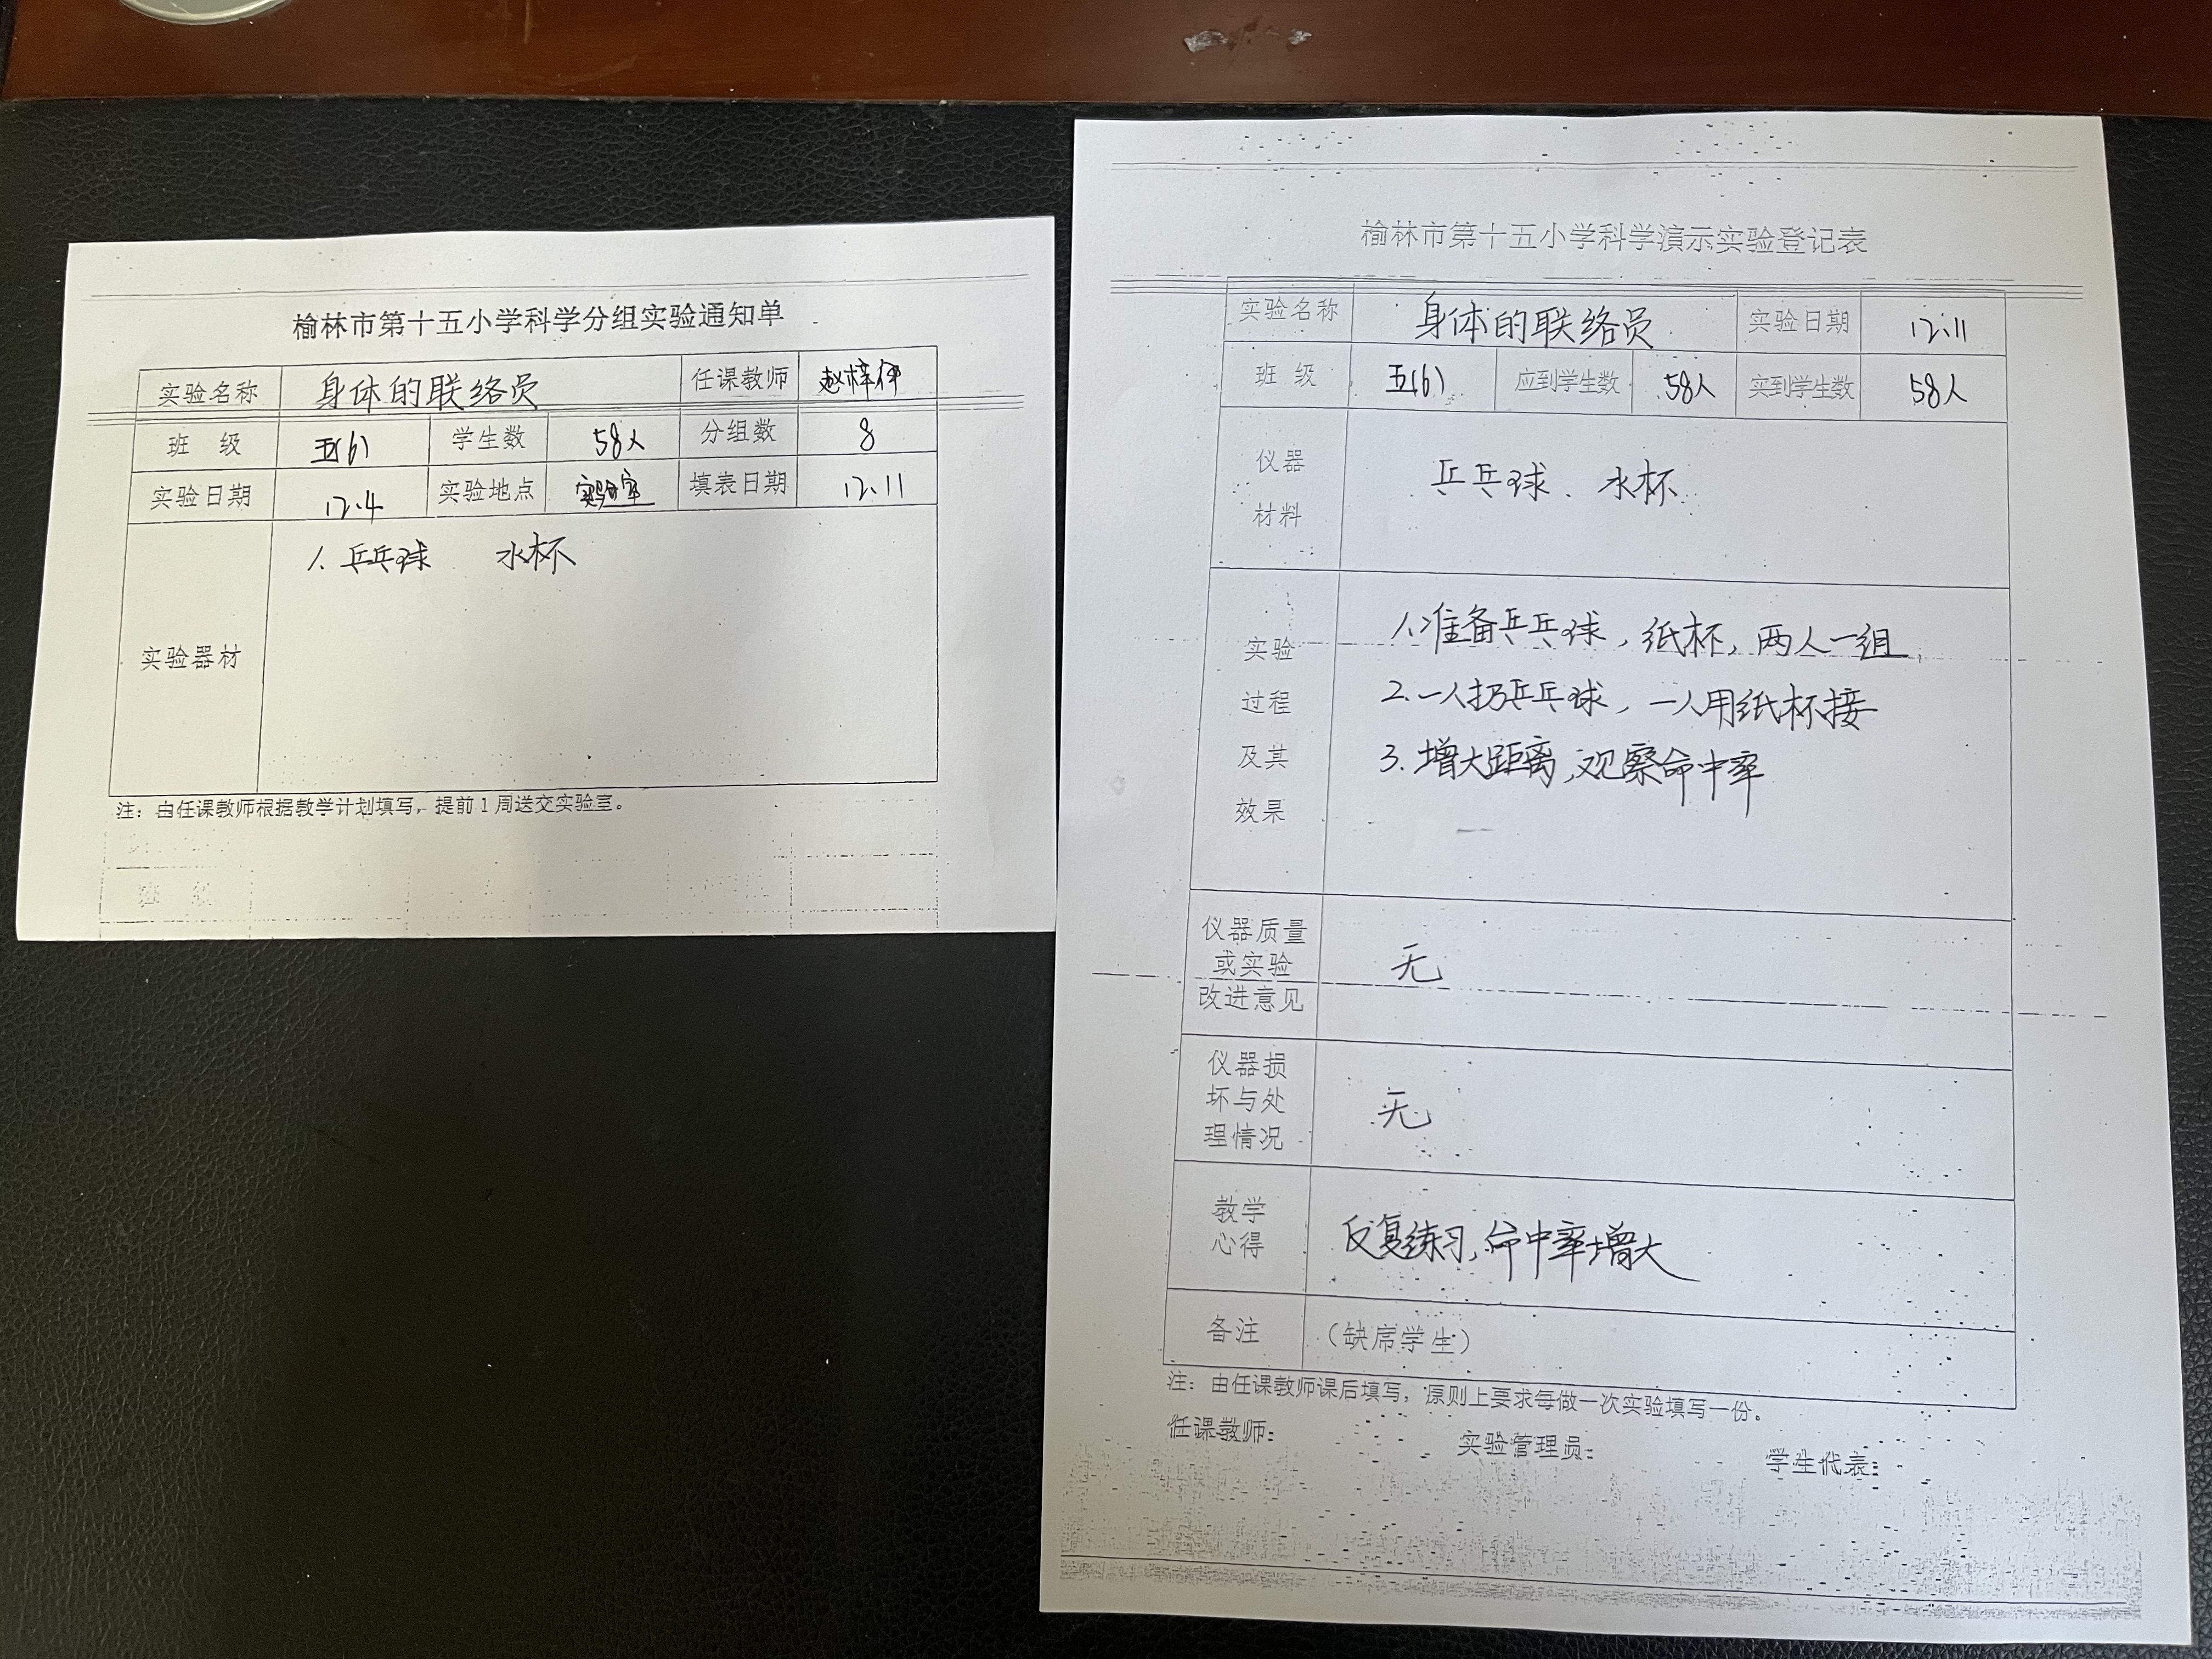 榆林市第十五小学科学分组实验通知单
实验名称 身体的联络员 任课教师 赵梓伊
班 级 五(6) 学生数 58人 分组数 8
实验日期 12.4 实验地点 实验室 填表日期 12.11
实验器材 1.乒乓球 水杯
注：由任课教师根据教学计划填写，提前1周送交实验室。
班 级
榆林市第十五小学科学演示实验登记表
实验名称 身体的联络员 实验日期 12.11
班 级 五(6) 应到学生数 58人 实到学生数 58人
仪器
材料
乒乓球、水杯
实验
过程
及其
效果
1.准备乒乓球，纸杯，两人一组
2.一人扔乒乓球，一人用纸杯接
3.增大距离，观察命中率
仪器质量
或实验
改进意见
无
仪器损
坏与处
理情况
无
教学
心得
反复练习，命中率增大
备注 （缺席学生）
注：由任课教师课后填写，原则上要求每做一次实验填写一份。
任课教师： 实验管理员： 学生代表：